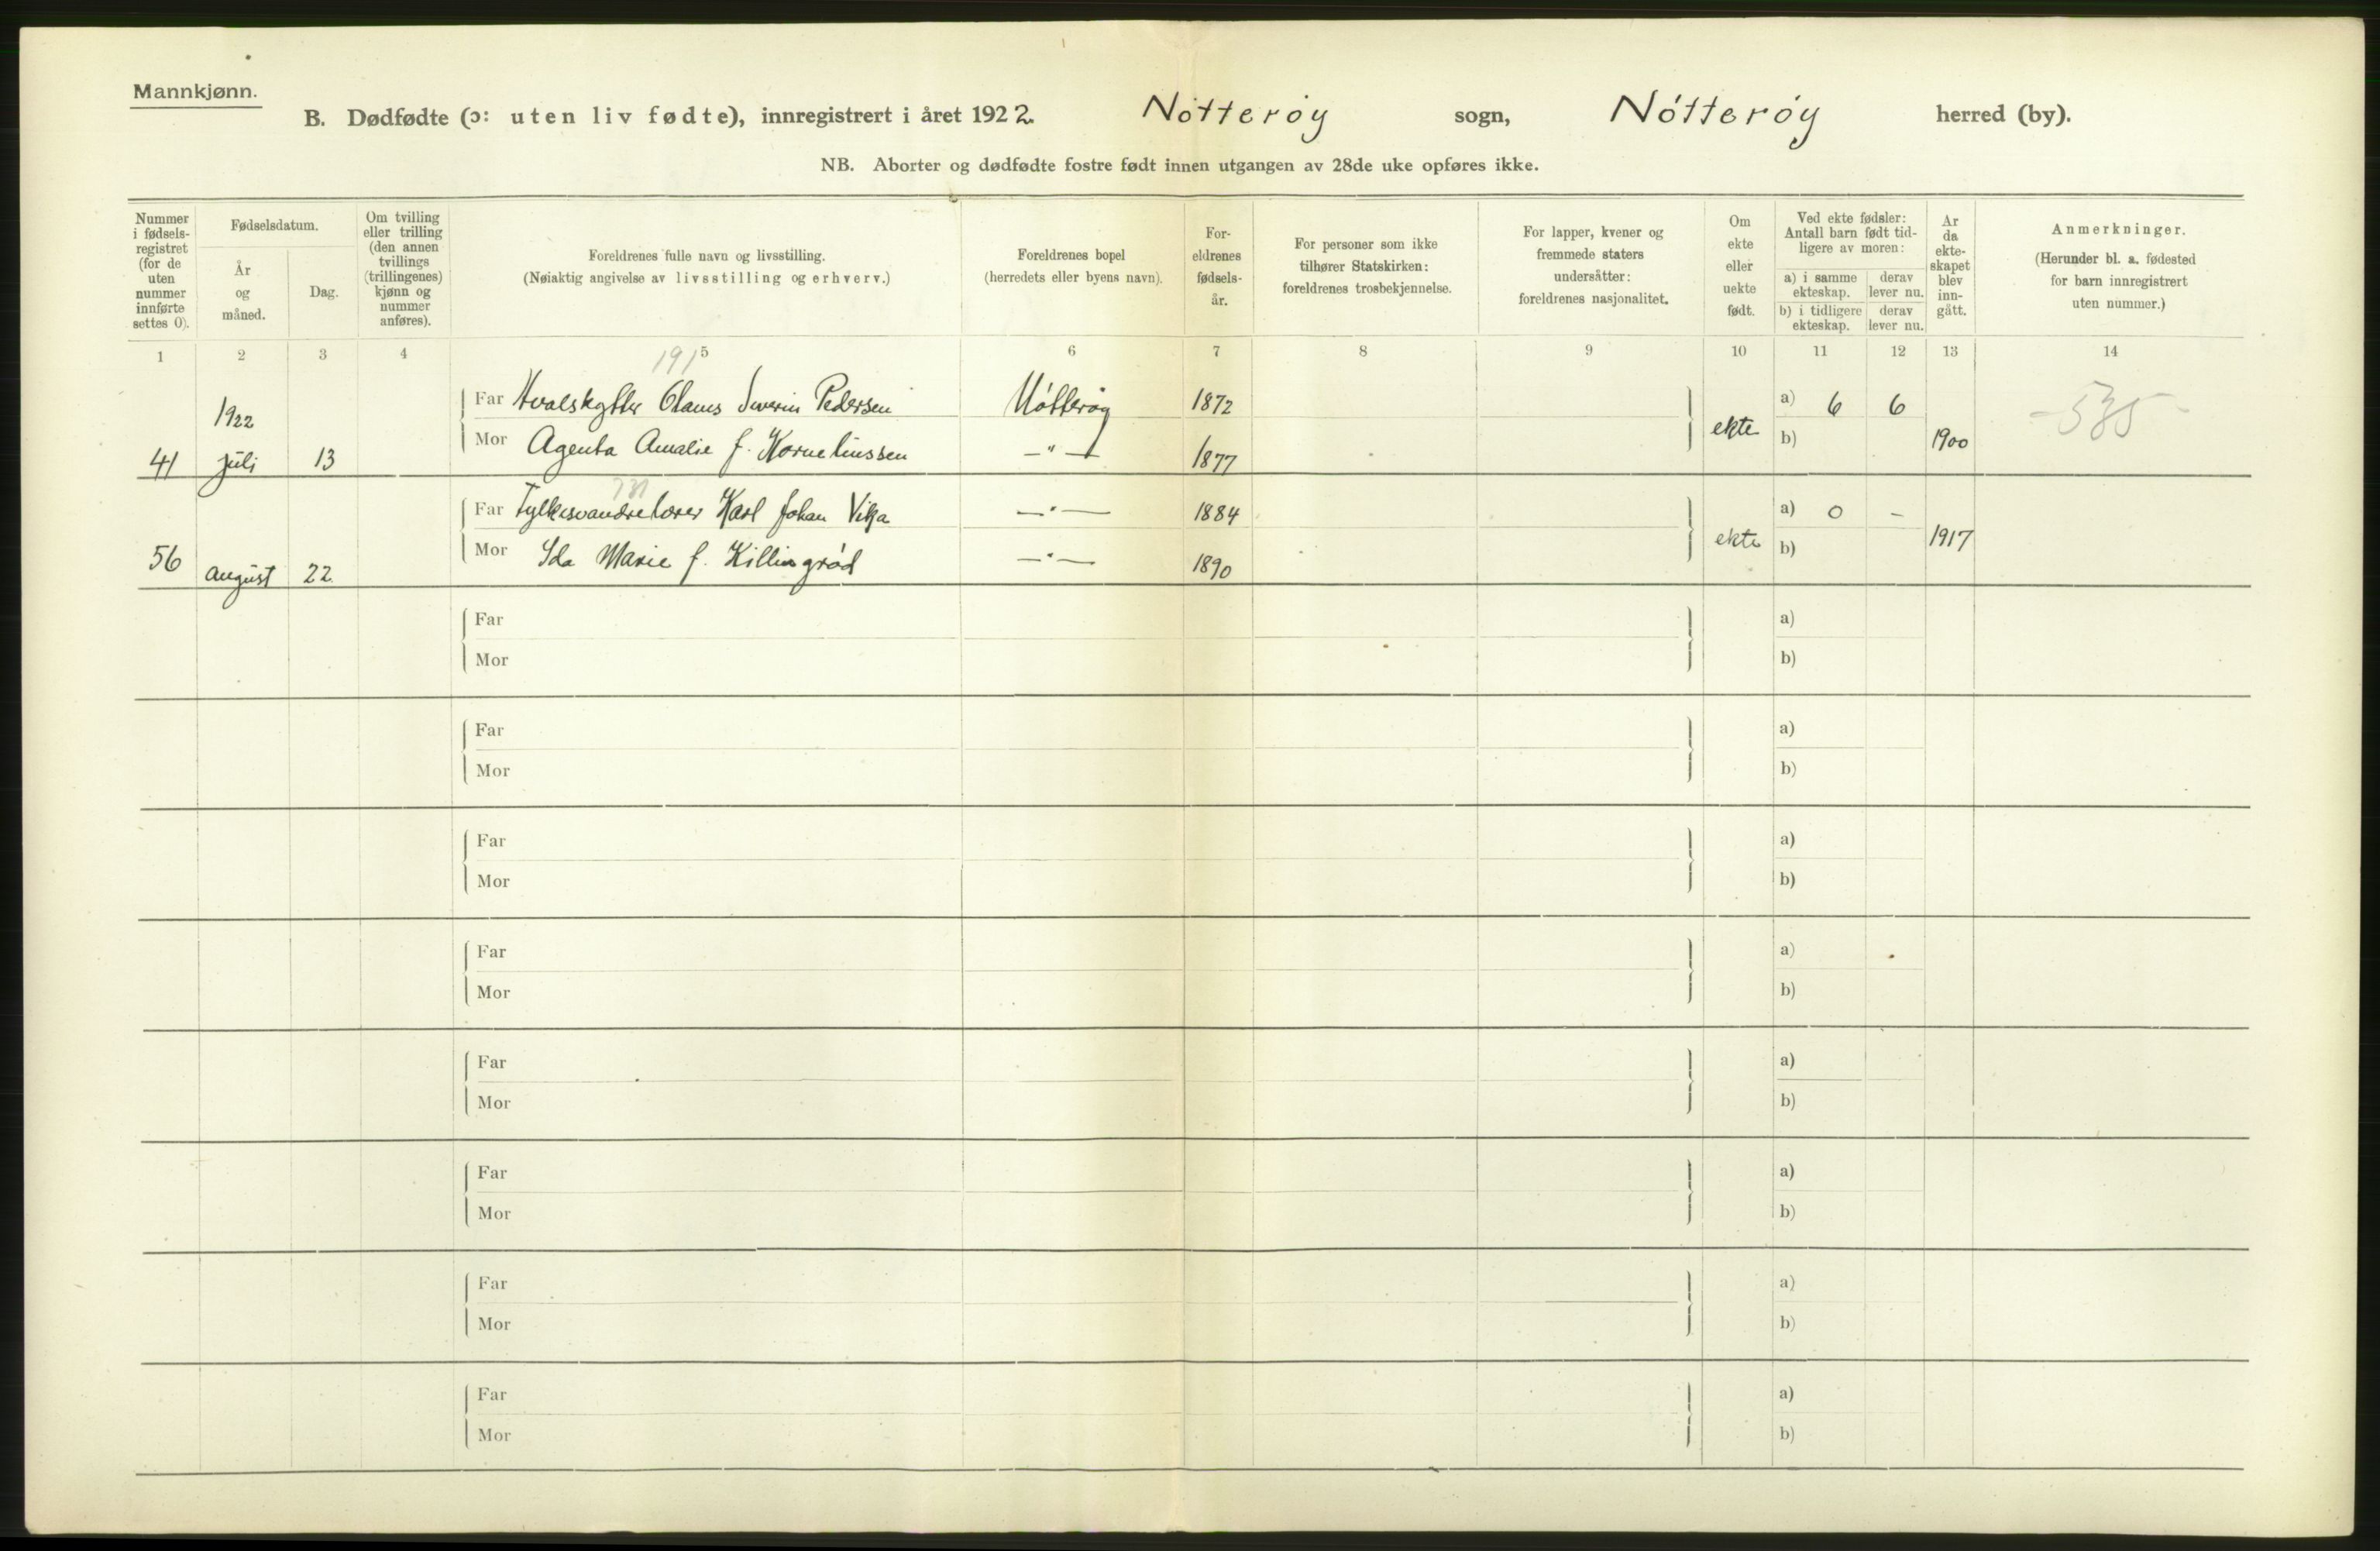 Mannkjønn.
B. Dødfødte (ɔ: uten liv fødte), innregistrert i året 1922. Nötterøy sogn, Nötterøy herred (by).
NB. Aborter og dødfødte fostre født innen utgangen av 28de uke opføres ikke.
Nummer i fødsels-registret (for de uten nummer innførte settes 0).
Fødselsdatum.
År og måned.
Dag.
Om tvilling eller trilling (den annen tvillings (trillingenes) kjønn og nummer anføres).
Foreldrenes fulle navn og livsstilling.
(Nøiaktig angivelse av livsstilling og erhverv.)
Foreldrenes bopel
(herredets eller byens navn).
For-eldrenes fødsels-år.
For personer som ikke tilhører Statskirken: foreldrenes trosbekjennelse.
For lapper, kvener og fremmede staters undersåtter: foreldrenes nasjonalitet.
Om ekte eller uekte født.
Ved ekte fødsler: Antall barn født tid-ligere av moren:
a) i samme ekteskap.
derav lever nu.
b) i tidligere ekteskap.
derav lever nu.
År da ekte-skapet blev inn-gått.
Anmerkninger.
(Herunder bl. a. fødested for barn innregistrert uten nummer.)
1 2 3 4 5 6 7 8 9 10 11 12 13 14
191
1922
Far Hvalskytter Olaus Severin Pedersen Nötterøy 1872 a) 6 6 535
41 juli 13 Mor Agenta Amalie f. Korneliussen —"— 1877 ekte b) 1900
731
Far Fylkesvandrelærer Karl Johan Vika —"— 1884 a) 0 -
56 august 22. Mor Ida Marie f. Killingrød —"— 1890 ekte b) 1917
Far a)
Mor b)
Far a)
Mor b)
Far a)
Mor b)
Far a)
Mor b)
Far a)
Mor b)
Far a)
Mor b)
Far a)
Mor b)
Far a)
Mor b)